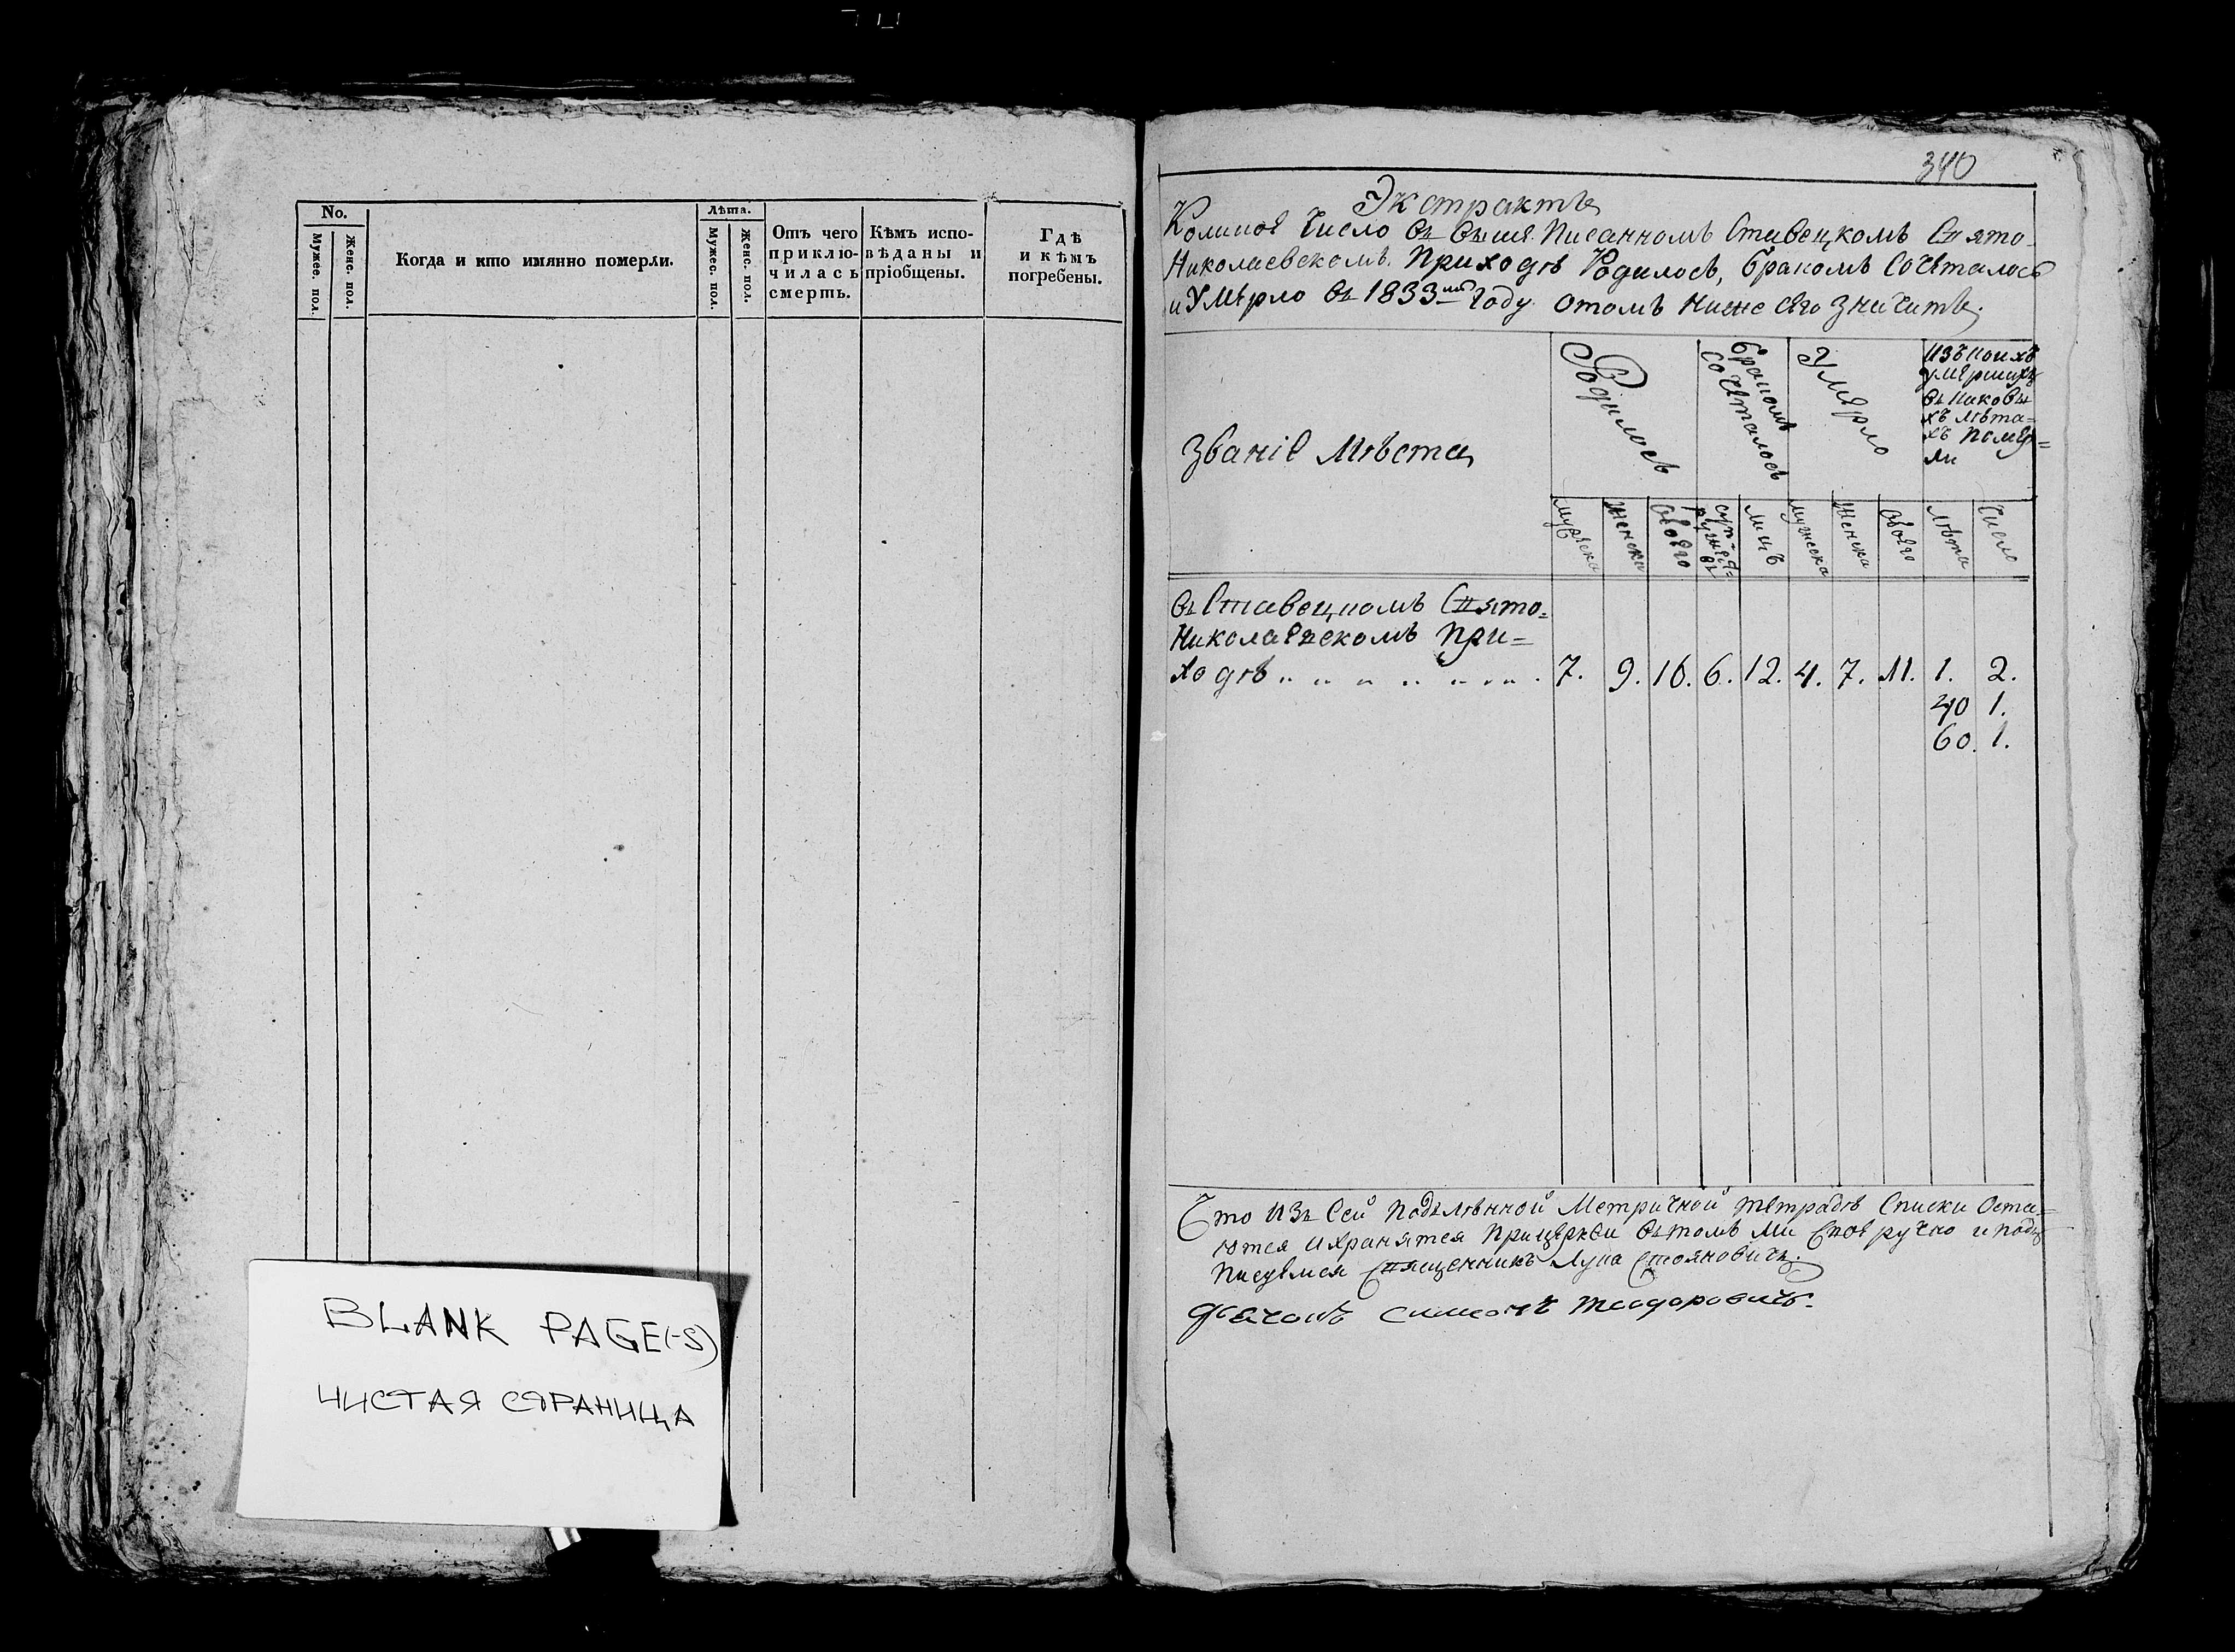 No.
Мужес. пол.
Женс. пол.
Когда и кто имянно померли.
Лѣта.
Мужес. пол.
Женс. пол.
Отъ чего
приклю-
чилась
смерть.
Кѣмъ испо-
вѣданы и
пріобщены.
Гдѣ
и кѣмъ
погребены.
BLANK PAGE(-S)
ЧИСТАЯ СТРАНИЦА
340
Экстрактъ
Коликое Число въ выше Писанномъ Ставецкомъ Свято-
Николаевскомъ Приходѣ Родилось, бракомъ Сочеталось
и Умерло въ 1833мъ Году отомъ Ниже сего Значитъ,
Званіе Мѣста
Родилось
бракомъ
Сочеталось
Умерло
изъ коихъ
умершихъ
въ каковы
хъ лѣта=
хъ Помер=
ли
мужеска
женска
обоего
суп=
руже=
въ
лицъ
мужеска
женска
обоего
лѣта
Число
въ Ставецкомъ Свято=
Николаевскомъ При=
ходѣ 7. 9. 16. 6. 12. 4. 7. 11. 1. 2.
40 1.
60. 1.
Что изъ Сей Подлѣнной Метричной тетрадѣ Списки Оста=
ются и хранятся При церкви въ томъ Ми своеручно и подъ
Писуемся Священникъ Лука Стояновичъ.
дьячокъ Симеонъ Теодоровичъ.